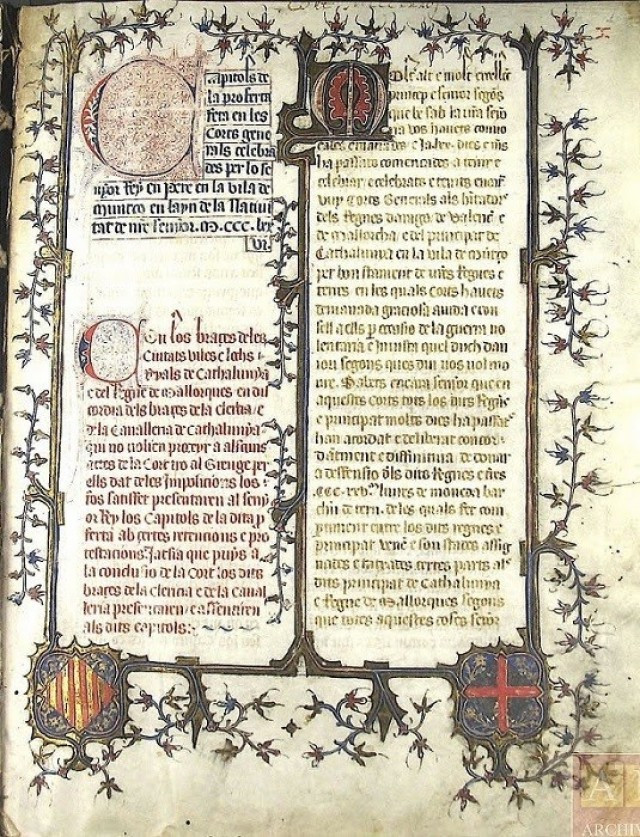 Capitols de
la proferta
feta en les
Corts gene
rals celebra
des per lo se
nyor Rey en Pere en la vila de
Muntço en layn de la Nativi
tat de nre senyor .M.CCC.lx
vi.
Con los braços deles
Ciutats viles e lochs
Reyals de Cathalunya
e del Regne de Mallorques en di
cordia dels braços de la clerecia e
de la Cavalleria de Cathalunya
qui no volien proceyr a alscuns
actes de la Cort tro al Greuge per
ells dat deles Imposicions los
fos satisfet presentaren al seny
or Rey los Capitols de la dita p
ferta ab certes retencions e pro
testacions Jatsia que puys a
la conclusio de la Cort los dits
braços de la clerecia e de la Caval
leria presentaren e assentiren
als dits capitols:
Molt alt e molt excellet
princep e senyor segons
que be sab la vra senyo
ria vos havets convo
cades e ha
ha passats comencades a tenir e
celebrar e celebrats e tenits encara
vuy Corts Generals als habitados
dels Regnes Darago de Valenc e
de Mallorcha e del principat de
Cathalunya en la vila de Muntço
per bon stament de vres Regnes e
terres en les quals Corts havets
demanada graciosa aiuda e con
sell a ells p occasio de la guerra vo
lentaria e iniusta quel duch dan
iou segons ques diu vos vol mo
ure. Sabets encara senyor que en
aquestes corts tots los dits Regnes
e principat molts dies ha passats
han acordat e deliberat concor
dantment e diffinitiva de donar
a deffensio dels dits Regnes e
lliures de moneda bar
de tern. de les quals fer com
pliment entre los dits regnes e
principat son stades assig
nades e taxades certes parts al
dit principat de Cathalunya
e Regne de Mallorques segons
que totes aquestes coses senyor
A
ARCHIV